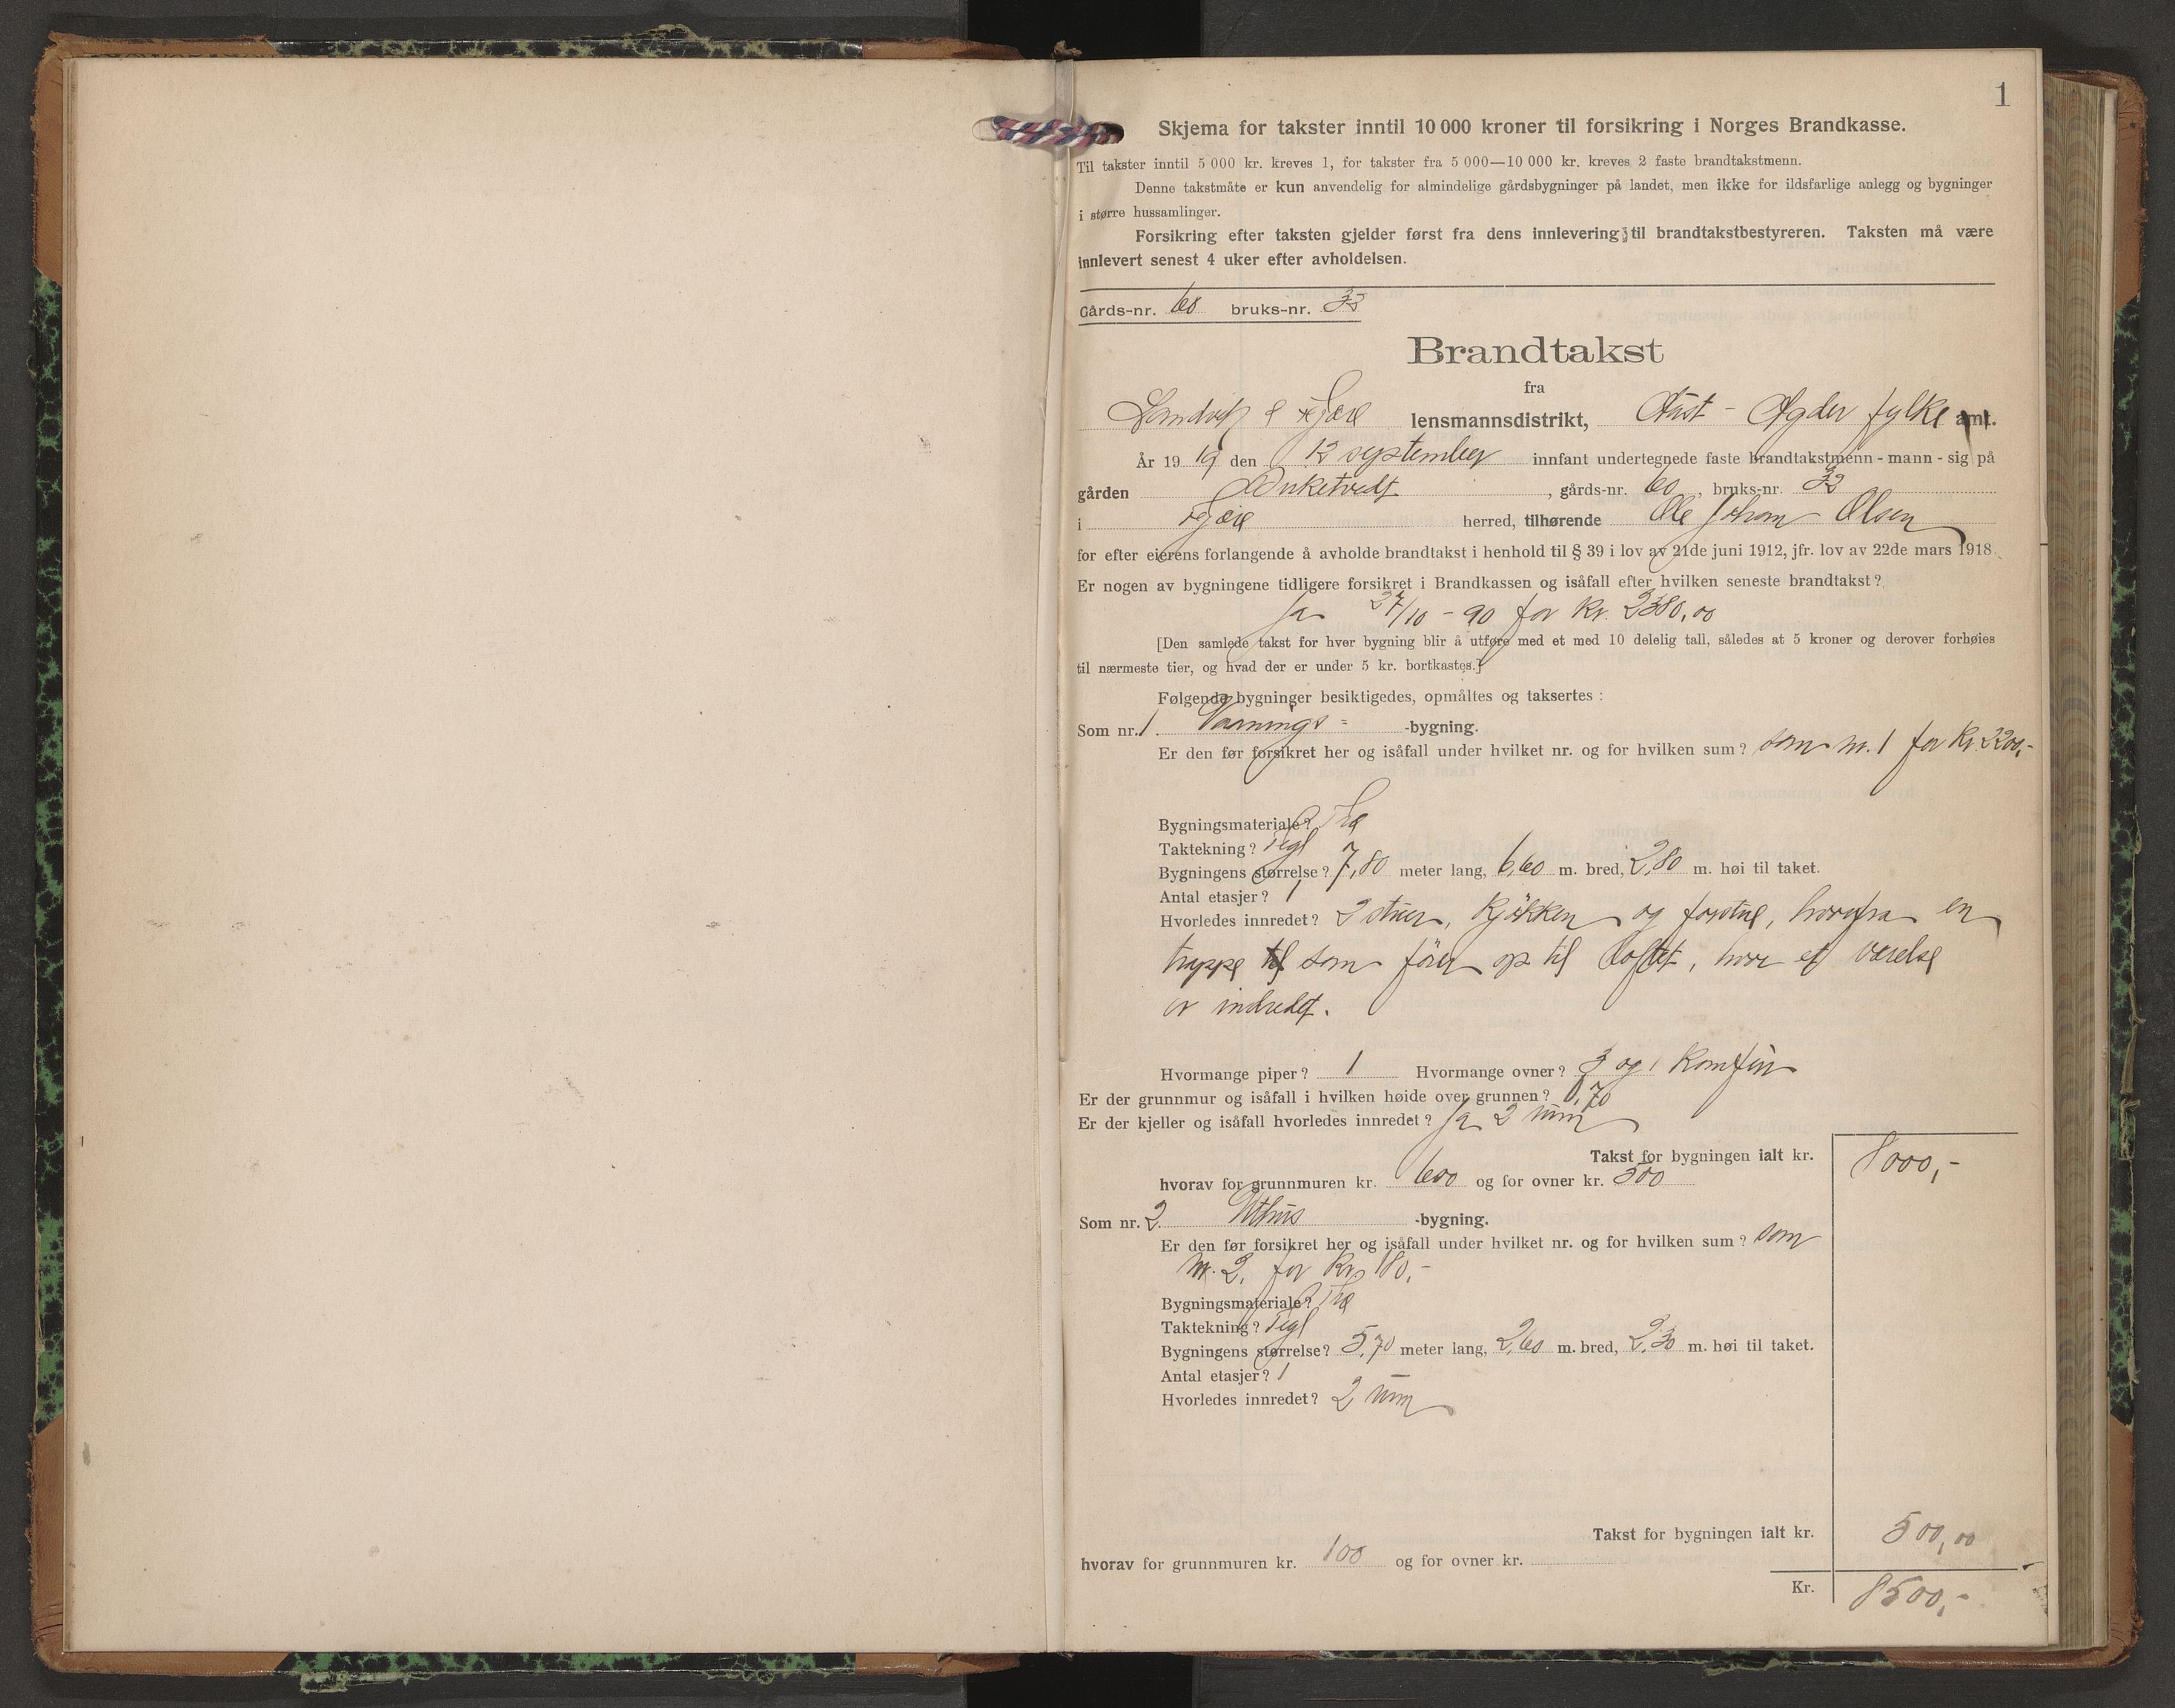 1
Skjema for takster inntil 10 000 kroner til forsikring i Norges Brandkasse.
Til takster inntil 5 000 kr. kreves 1, for takster fra 5 000—10 000 kr. kreves 2 faste brandtakstmenn.
Denne takstmåte er kun anvendelig for almindelige gårdsbygninger på landet, men ikke for ildsfarlige anlegg og bygninger
i større hussamlinger.
Forsikring efter taksten gjelder først fra dens innlevering til brandtakstbestyreren. Taksten må være
innlevert senest 4 uker efter avholdelsen.
Gårds-nr. 60 bruks-nr. 33
Brandtakst
fra
Landvik & Fjære lensmannsdistrikt, Aust-Agder fylke amt.
År 19 19 den 12 september innfant undertegnede faste brandtakstmenn - mann - sig på
gården , gårds-nr. 60, bruks-nr. 33
i Fjære herred, tilhørende Ole Johan Olsen
for efter eierens forlangende å avholde brandtakst i henhold til § 39 i lov av 21de juni 1912, jfr. lov av 22de mars 1918.
Er nogen av bygningene tidligere forsikret i Brandkassen og isåfall efter hvilken seneste brandtakst?
Ja 27/10 - 90 for Kr. 2380,00
[Den samlede takst for hver bygning blir å utføre med et med 10 delelig tall, således at 5 kroner og derover forhøies
til nærmeste tier, og hvad der er under 5 kr. bortkastes.]
Følgende bygninger besiktigedes, opmåltes og taksertes :
Som nr. 1 Vaanings= -bygning.
Er den før forsikret her og isåfall under hvilket nr. og for hvilken sum? som nr. 1 for Kr. 2200,-
Bygningsmateriale? Træ
Taktekning? Tegl
Bygningens størrelse? 7,80 meter lang, 6,60 m. bred, 2,80 m. høi til taket.
Antal etasjer? 1
Hvorledes innredet? 2 stuer, kjøkken og forstue, hvorfra en
trappe som fører op til loftet, hvor et værelse
er indredet.
Hvormange piper? 1 Hvormange ovner? 3 og 1 Komfur
Er der grunnmur og isåfall i hvilken høide over grunnen? 0,70
Er der kjeller og isåfall hvorledes innredet? Ja 2 rum
Takst for bygningen ialt kr. 8000,-
hvorav for grunnmuren kr. 600 og for ovner kr. 500
Som nr. 2 Uthus -bygning.
Er den før forsikret her og isåfall under hvilket nr. og for hvilken sum? som
nr. 2, for Kr. 180,-
Bygningsmateriale? Træ
Taktekning? Tegl
Bygningens størrelse? 5,70 meter lang, 2,60 m. bred, 2,30 m. høi til taket.
Antal etasjer? 1
Hvorledes innredet? 2 rum
Takst for bygningen ialt kr. 500,00
hvorav for grunnmuren kr. 100 og for ovner kr.
Kr. 8500,-